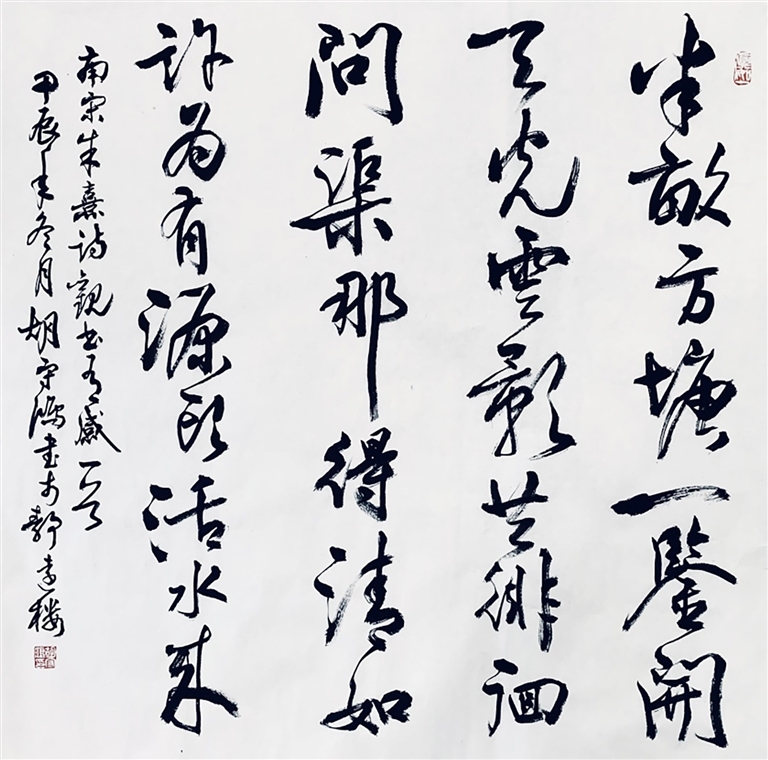 半畝方塘一鑒開
天光雲影共徘徊
問渠那得清如
許為有源頭活水來
南宋朱熹詩觀書有感一首
甲辰年冬月胡守書於靜遠樓